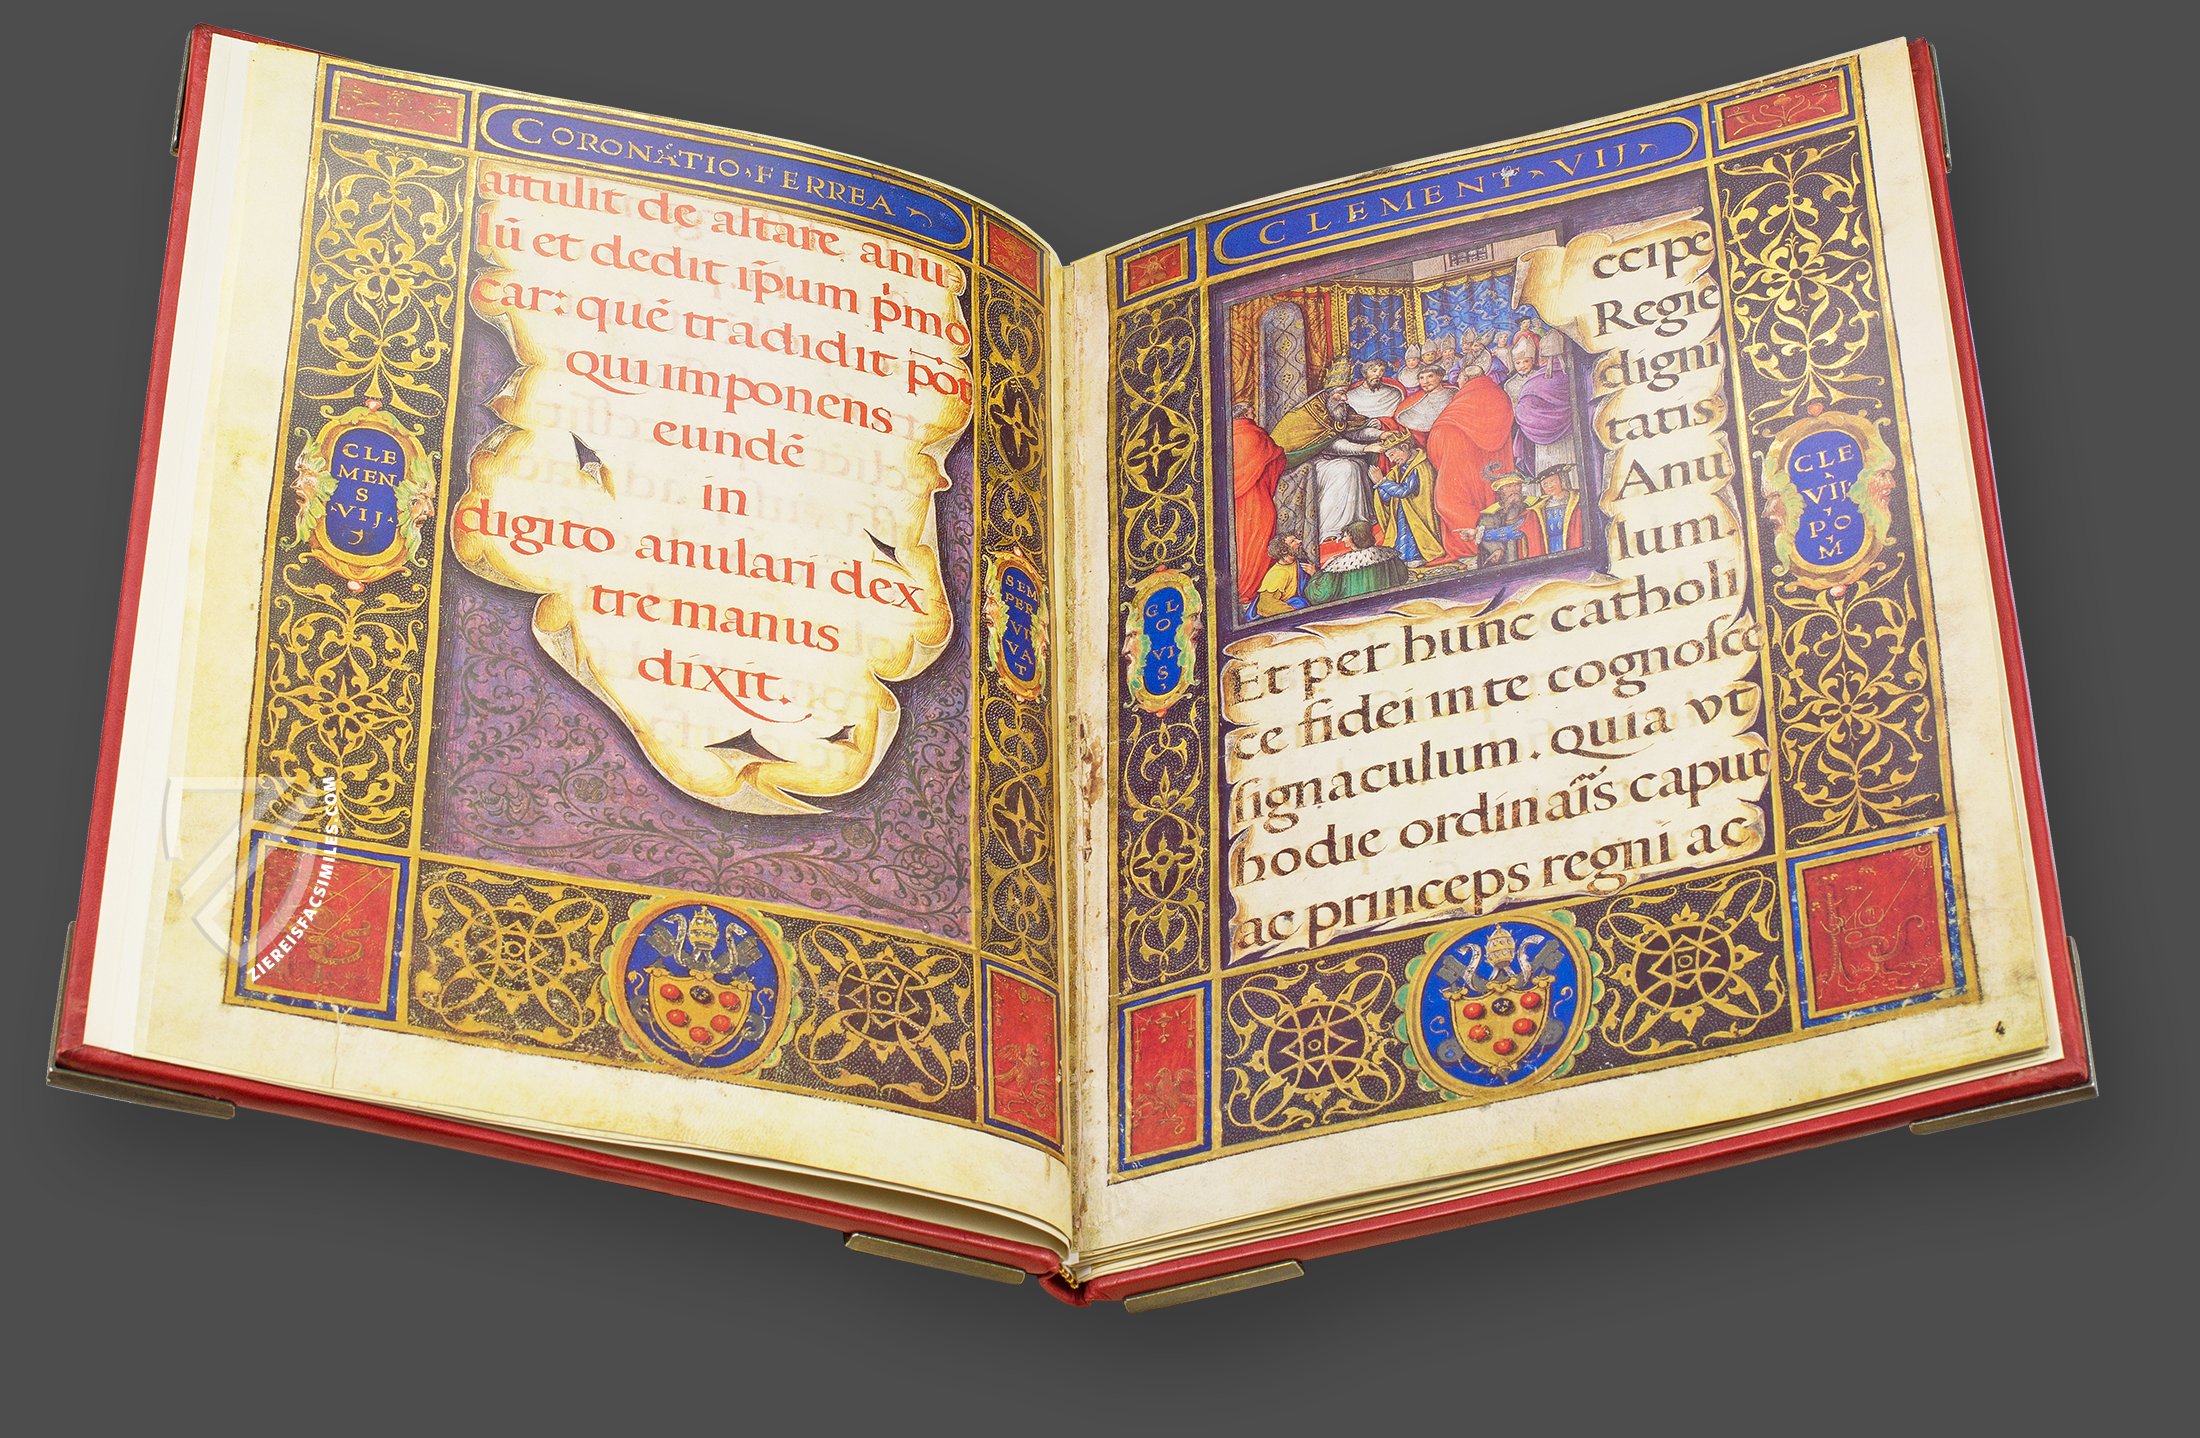 CORONATIO·FERREA
attulit de altare anu-
lū et dedit ip̄um p̄mo
car: qué tradidit p̄ot
qui imponens
eundē
in
digito anulari dex
tre manus
dixit.
CLE
MEN
S
·VIJ·
SEM
PER
VI
VA
T
CLEMENT·VIJ
ccipe
Regie
digni
tatis
Anu
lum.
Et per hunc catholi
ce fidei in te cognosce
signaculum. Quia vt
hodie ordinaīs caput
ac princeps regni ac
GL
O
VI
S
CLE
VIJ
PO
M
4
ZIEREISFACSIMILES.COM